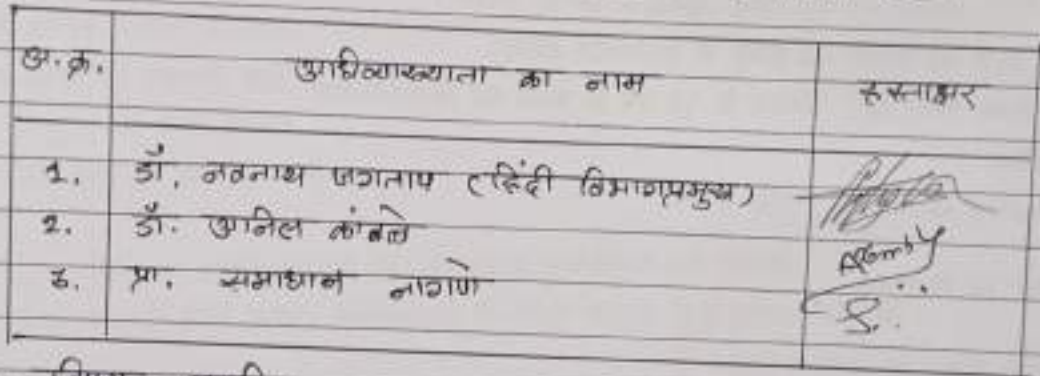 अ.क्र. अधिव्याख्याता का नाम हस्ताक्षर
1. डॉ. नवनाथ जगताप (हिंदी विभागप्रमुख)
2. डॉ. अनिल कांबळे
3. प्रा. समाधान नागणे